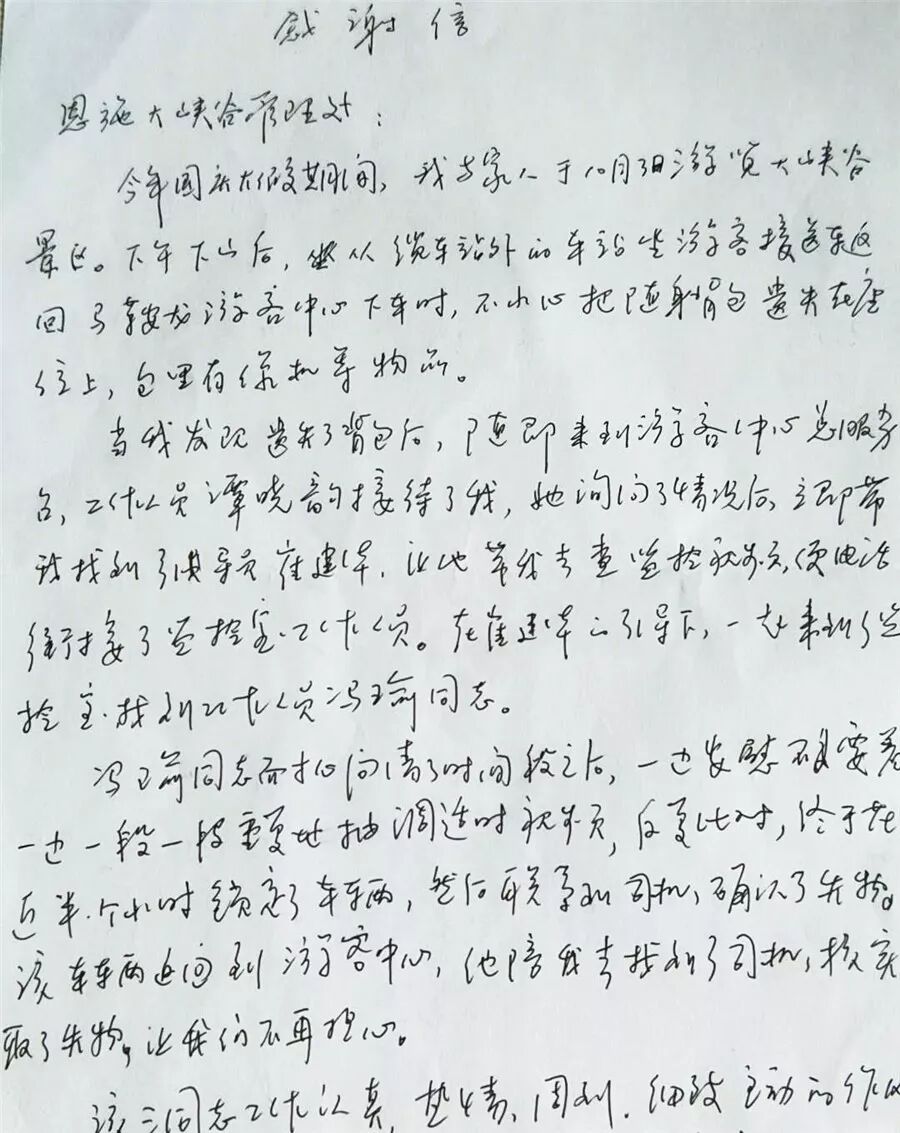 感谢信
恩施大峡谷管理处：
今年国庆大假期间，我与家人于10月3日游览大峡谷
景区。下午下山后，从缆车站外的车站坐游客接送车返
回马鞍龙游客中心下车时，不小心把随身背包遗失在座
位上，包里有像机等物品。
当我发现遗失了背包后，随即来到游客中心总服务
台，工作人员谭晓韵接待了我，她询问了情况后，立即带
我找到了领导员崔建华，让他带我去查监控视频，便电话
衔接了监控室工作人员。在崔建华的引导下，一起来到监
控室找到工作人员冯瑜同志。
冯瑜同志面加问清了时间段之后，一边安慰不要着
一边一段一段重复地抽调适时视频，反复比对，终于在
近半个小时锁定了车辆，然后联系到司机，确认了失物。
该车辆返回到游客中心，他陪我去找到了司机，核实
取了失物，让我们不再担心。
该三同志工作认真，热情、周到、细致主动的作风